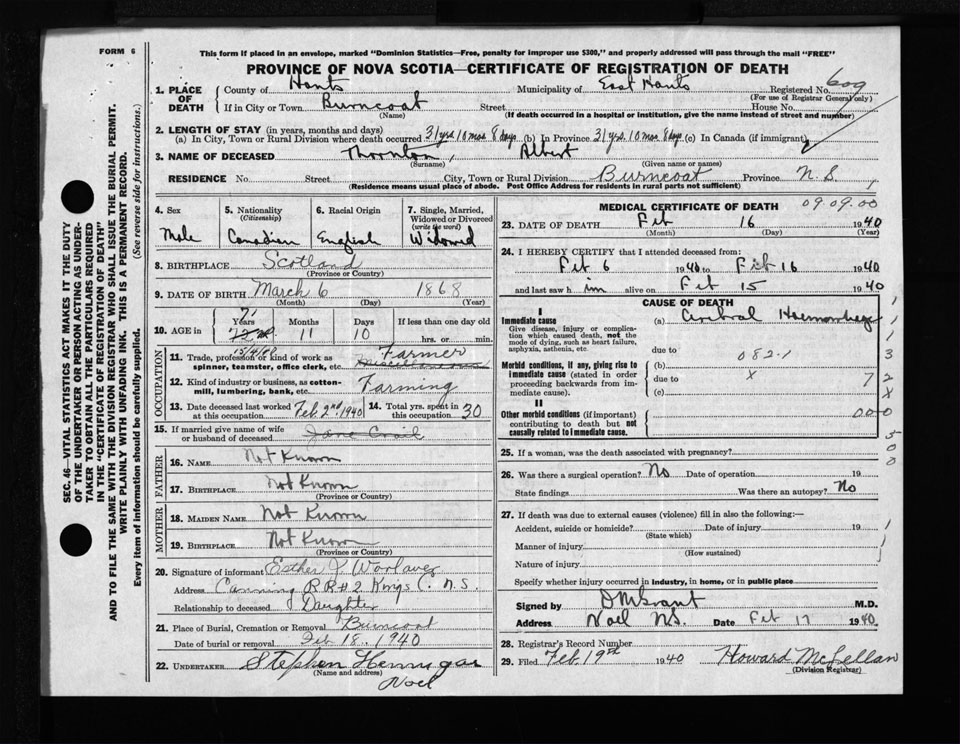 FORM 6
This form if placed in an envelope, marked "Dominion Statistics—Free, penalty for improper use $300," and properly addressed will pass through the mail "FREE"
PROVINCE OF NOVA SCOTIA—CERTIFICATE OF REGISTRATION OF DEATH
609
1. PLACE OF DEATH County of Hants Municipality of East Hants Registered No.
(For use of Registrar General only)
If in City or Town Burncoat Street House No.
(Name) (If death occurred in a hospital or institution, give the name instead of street and number)
2. LENGTH OF STAY (in years, months and days)
(a) In City, Town or Rural Division where death occurred 31 yrs 10 mos 8 days (b) In Province 31 yrs. 10 mos 8 days (c) In Canada (if immigrant)
3. NAME OF DECEASED Thornton, Albert
(Surname) (Given name or names)
RESIDENCE No. Street City, Town or Rural Division Burncoat Province N.S.
(Residence means usual place of abode. Post Office Address for residents in rural parts not sufficient)
4. Sex Male
5. Nationality (Citizenship) Canadian
6. Racial Origin English
7. Single, Married, Widowed or Divorced (write the word) Widowed
8. BIRTHPLACE Scotland
(Province or Country)
9. DATE OF BIRTH March 6 1868
(Month) (Day) (Year)
10. AGE in Years 71 Months 11 Days 10 If less than one day old hrs. or min.
11. Trade, profession or kind of work as spinner, teamster, office clerk, etc. Farmer
12. Kind of industry or business, as cotton-mill, lumbering, bank, etc. Farming
13. Date deceased last worked at this occupation Feb 2nd 1940
14. Total yrs. spent in this occupation 30
OCCUPATION
15. If married give name of wife or husband of deceased Jane Crail
FATHER
16. NAME Not Known
17. BIRTHPLACE Not Known
(Province or Country)
MOTHER
18. MAIDEN NAME Not Known
19. BIRTHPLACE Not Known
(Province or Country)
20. Signature of informant Esther J. Worlaver
Address Canning RR#2 Kings C. N.S.
Relationship to deceased Daughter
21. Place of Burial, Cremation or Removal Burncoat
Date of burial or removal Feb 18, 1940
22. UNDERTAKER Stephen Hennigar
(Name and address)
Noel
MEDICAL CERTIFICATE OF DEATH 09.09.00
23. DATE OF DEATH Feb 16 1940
(Month) (Day) (Year)
24. I HEREBY CERTIFY that I attended deceased from:
Feb 6 1940 to Feb 16 1940
and last saw him alive on Feb 15 1940
CAUSE OF DEATH
I
Immediate cause (a) Cerebral Haemorrhage
Give disease, injury or complication which caused death, not the mode of dying, such as heart failure, asphyxia, asthenia, etc.
due to 082.1
Morbid conditions, if any, giving rise to immediate cause (stated in order proceeding backwards from immediate cause).
(b)
due to X
(c)
II
Other morbid conditions (if important) contributing to death but not causally related to immediate cause.
000
25. If a woman, was the death associated with pregnancy?
26. Was there a surgical operation? No Date of operation 19
State findings Was there an autopsy? No
27. If death was due to external causes (violence) fill in also the following:—
Accident, suicide or homicide? Date of injury 19
(State which)
Manner of injury
(How sustained)
Nature of injury
Specify whether injury occurred in industry, in home, or in public place
Signed by D M Grant M.D.
Address Noel N.S. Date Feb 17 1940
28. Registrar's Record Number
29. Filed Feb. 19th 1940 Howard McLellan
(Division Registrar)
SEC. 46—VITAL STATISTICS ACT MAKES IT THE DUTY
OF THE UNDERTAKER OR PERSON ACTING AS UNDER-
TAKER TO OBTAIN ALL THE PARTICULARS REQUIRED
IN THE "CERTIFICATE OF REGISTRATION OF DEATH"
AND TO FILE THE SAME WITH THE DIVISION REGISTRAR WHO SHALL ISSUE THE BURIAL PERMIT.
WRITE PLAINLY WITH UNFADING INK. THIS IS A PERMANENT RECORD.
Every item of information should be carefully supplied. (See reverse side for instructions.)